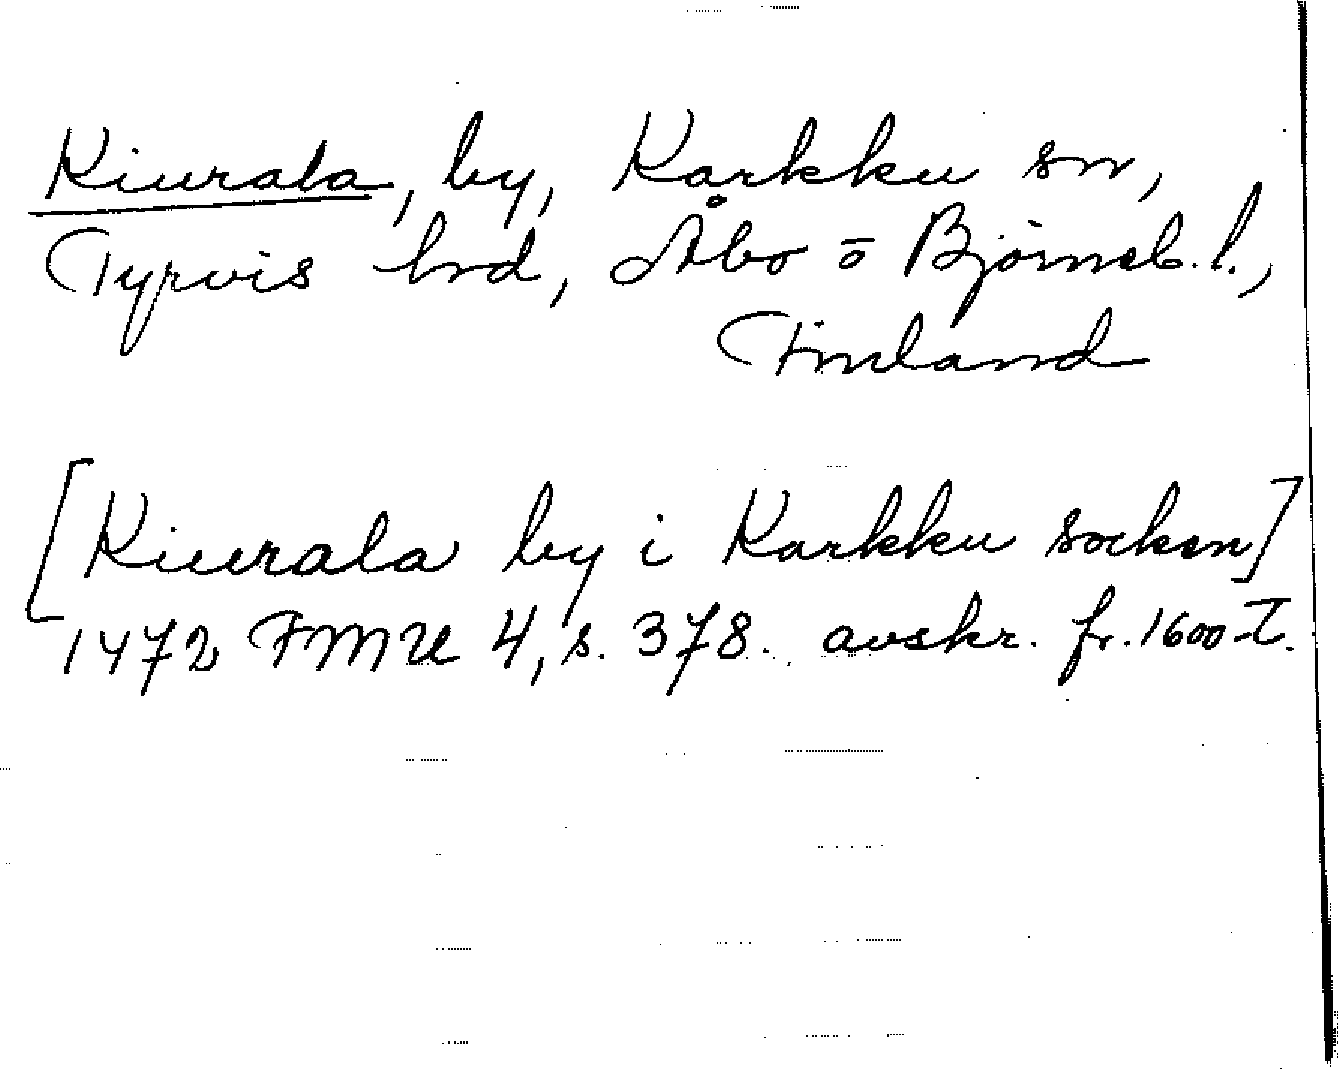 Kiurala, by, Karkku sn,
Tyrvis hrd, Åbo o Björneb. l.,
Finland
[Kiurala by i Karkku socken]
1472 FMU 4, s. 378. avskr. fr. 1600-t.